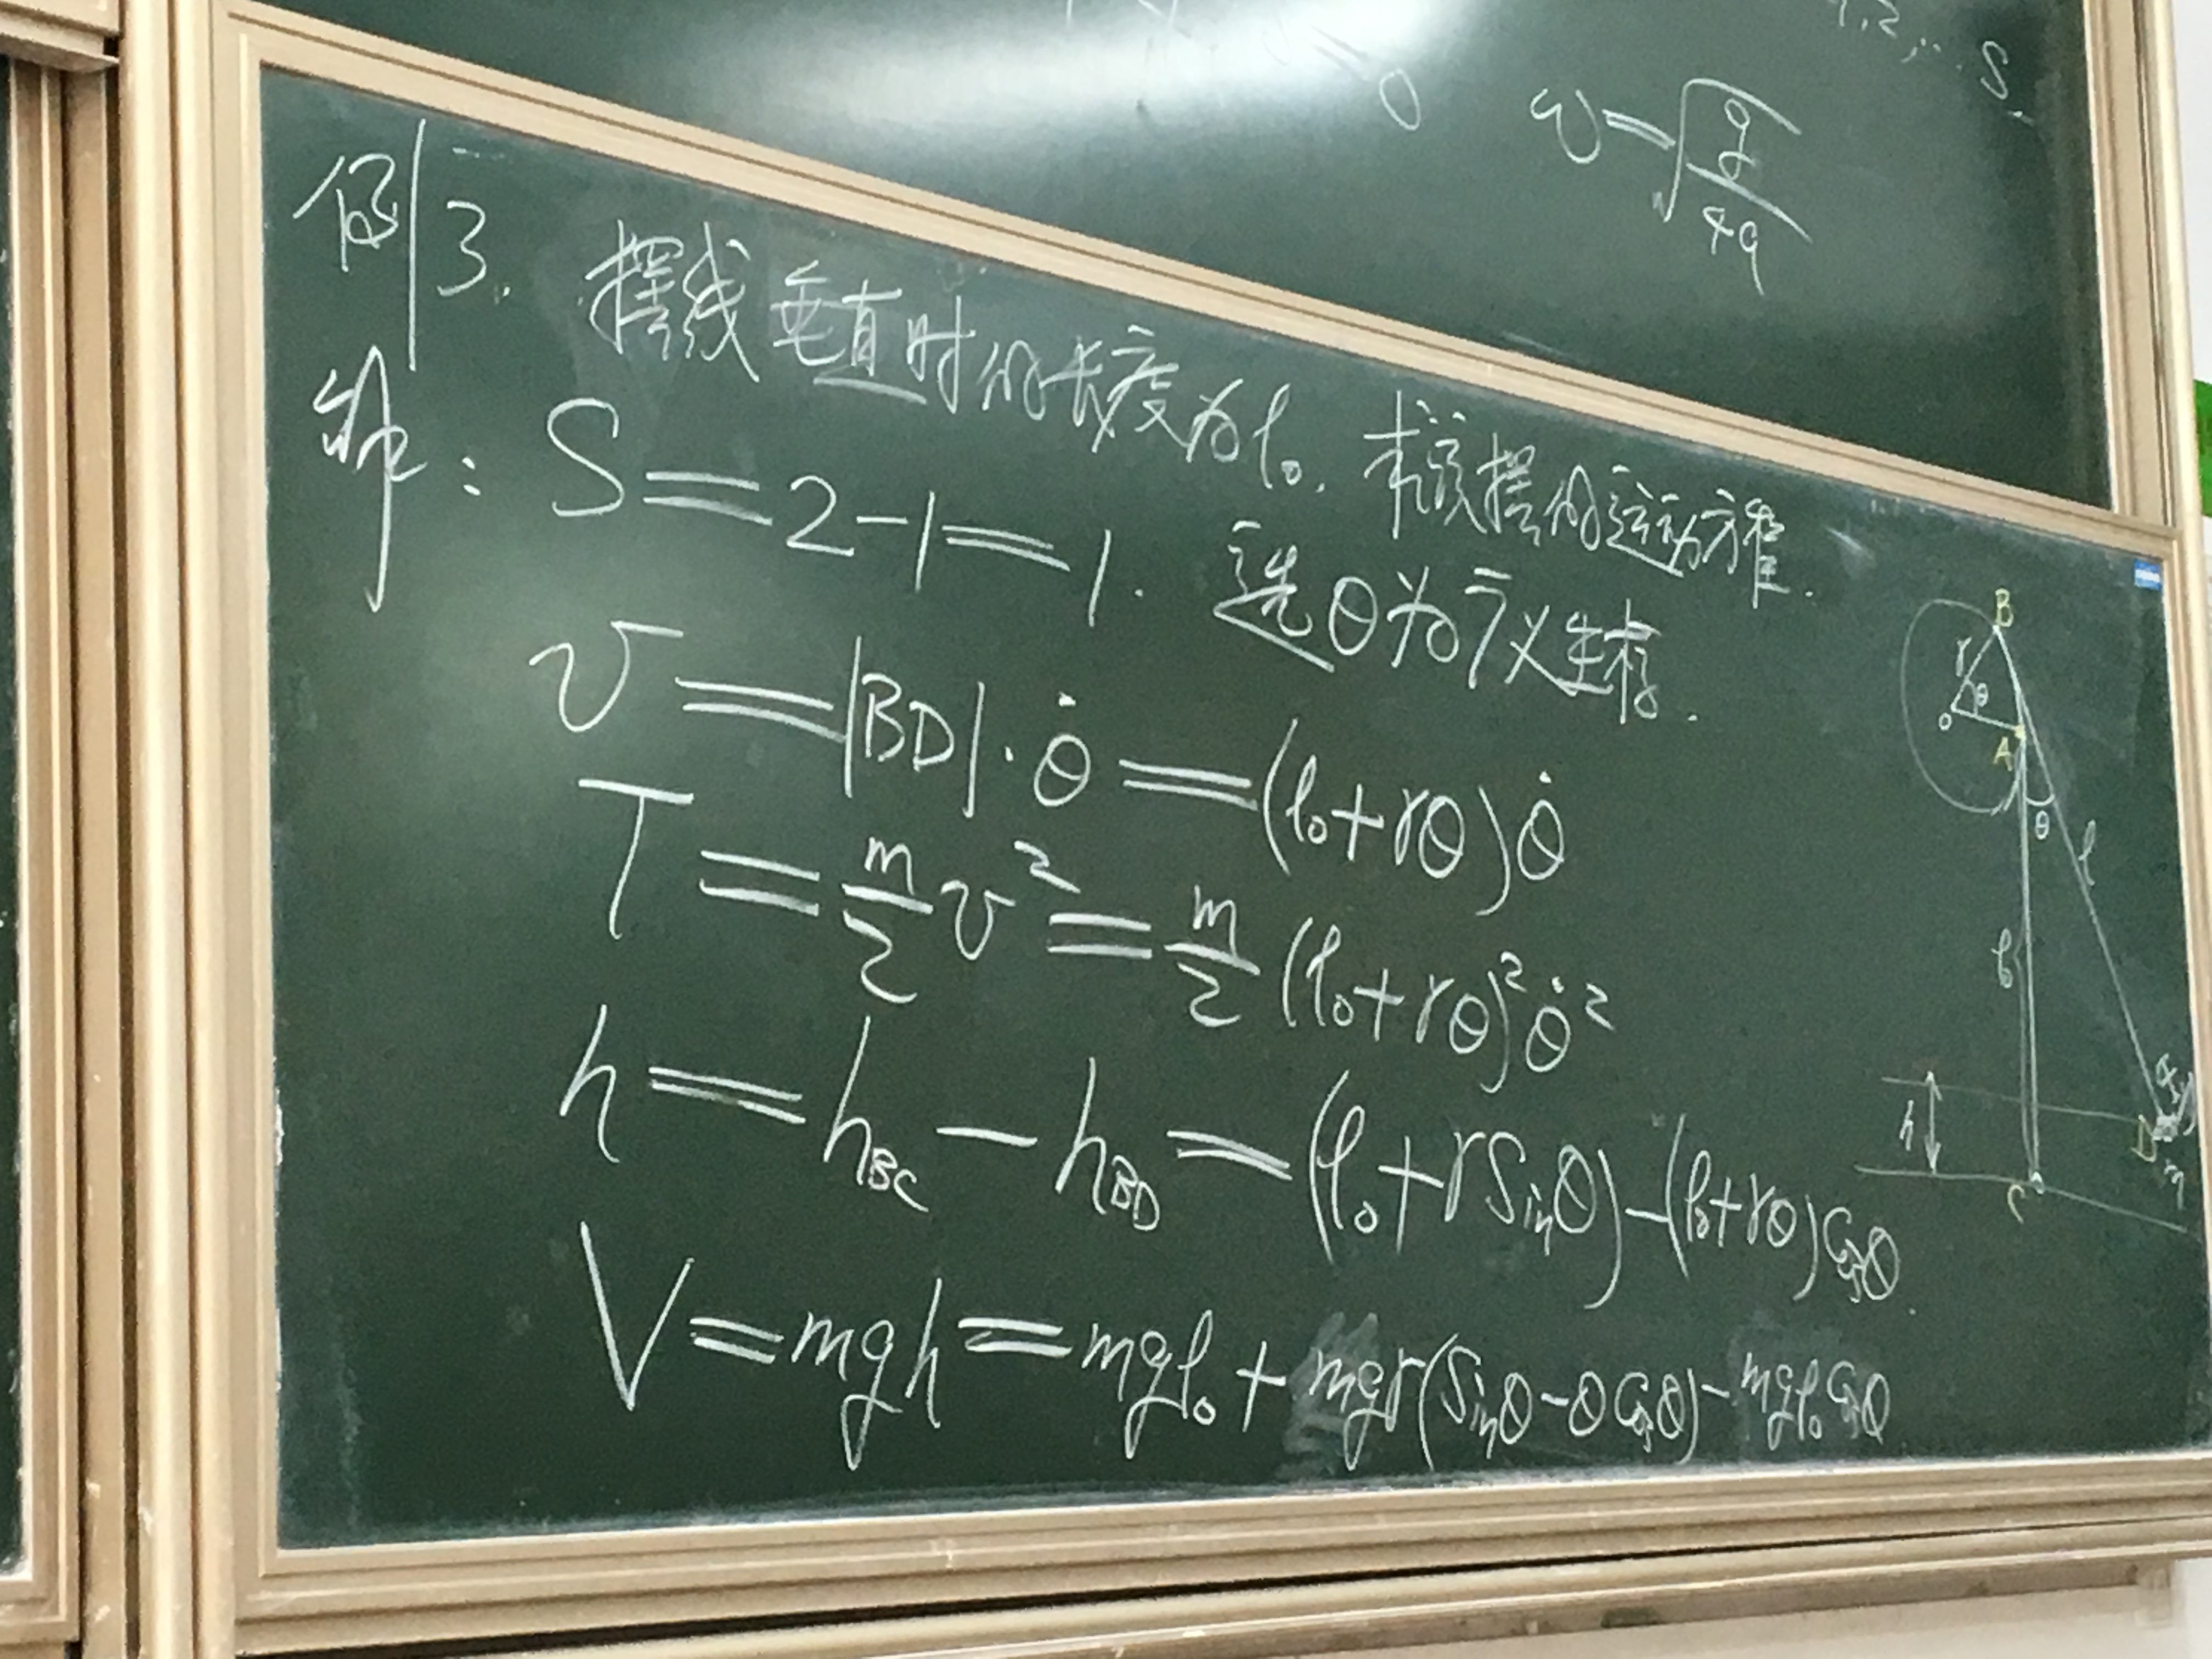 1,2,... S.
0
ω=√(g/4a)
例3. 摆线垂直时的长度为l₀. 求该摆的运动方程.
解: S=2-1=1. 选θ为广义坐标.
v=|BD|·θ̇=(l₀+rθ)θ̇
T=m/2 v²=m/2 (l₀+rθ)²θ̇²
h=h_BC-h_BD=(l₀+rSinθ)-(l₀+rθ)Cosθ.
V=mgh=mgl₀+mgr(Sinθ-θCosθ)-mgl₀Cosθ
B
r
θ
o
A
θ
l
l₀
h
D
m
C